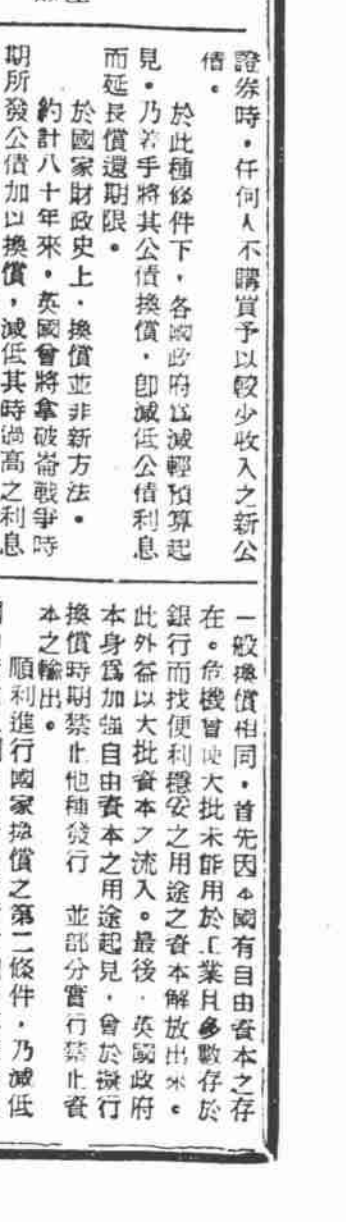 證券時．任何人不購買予以較少收入之新公
債．
於此種條件下，各國政府爲減輕預算起
見．乃着手將其公債換償．卽減低公債利息
而延長償還期限．
於國家財政史上．換償並非新方法．
約計八十年來．英國曾將拿破崙戰爭時
期所發公債加以換償，減低其時過高之利息
一般換償相同．首先因本國有自由資本之存
在。危機曾使大批未能用於工業且多數存於
銀行而找便利穩妥之用途之資本解放出來。
此外益以大批資本之流入。最後．英國政府
本身爲加強自由資本之用途起見．曾於擬行
換償時期禁止他種發行　並部分實行禁止資
本之輸出．
順利進行國家換償之第二條件，乃減低